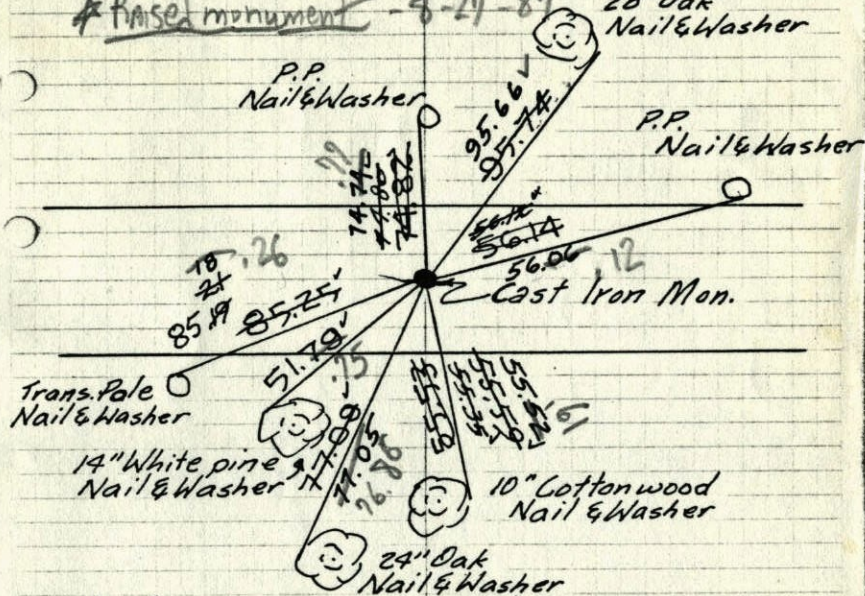 * Raised monument - 8-27-87
28" Oak
Nail & Washer
P.P.
Nail & Washer
95.66 ✓
95.74
P.P.
Nail & Washer
.79
74.74
74.80
74.82
56.12
56.14
56.06 .12
Cast Iron Mon.
.26
18
21
85.19
85.25 ✓
51.79 ✓
.75
Trans. Pole
Nail & Washer
14" White pine
Nail & Washer
77.08 ✓
77.05
76.86
55.55
55.59
55.62 ✓
.61
10" Cottonwood
Nail & Washer
24" Oak
Nail & Washer